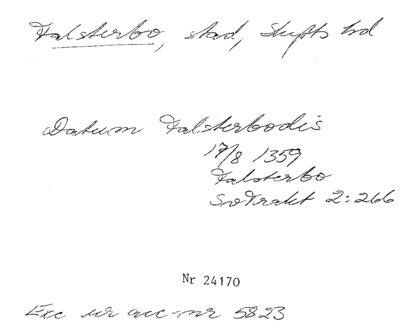 Falsterbo, stad, Skytts hd
Datum Falsterbodis
17/8 1359
Falsterbo
SvTrakt 2:266
Nr 24170
Exc ur acc-nr 5823